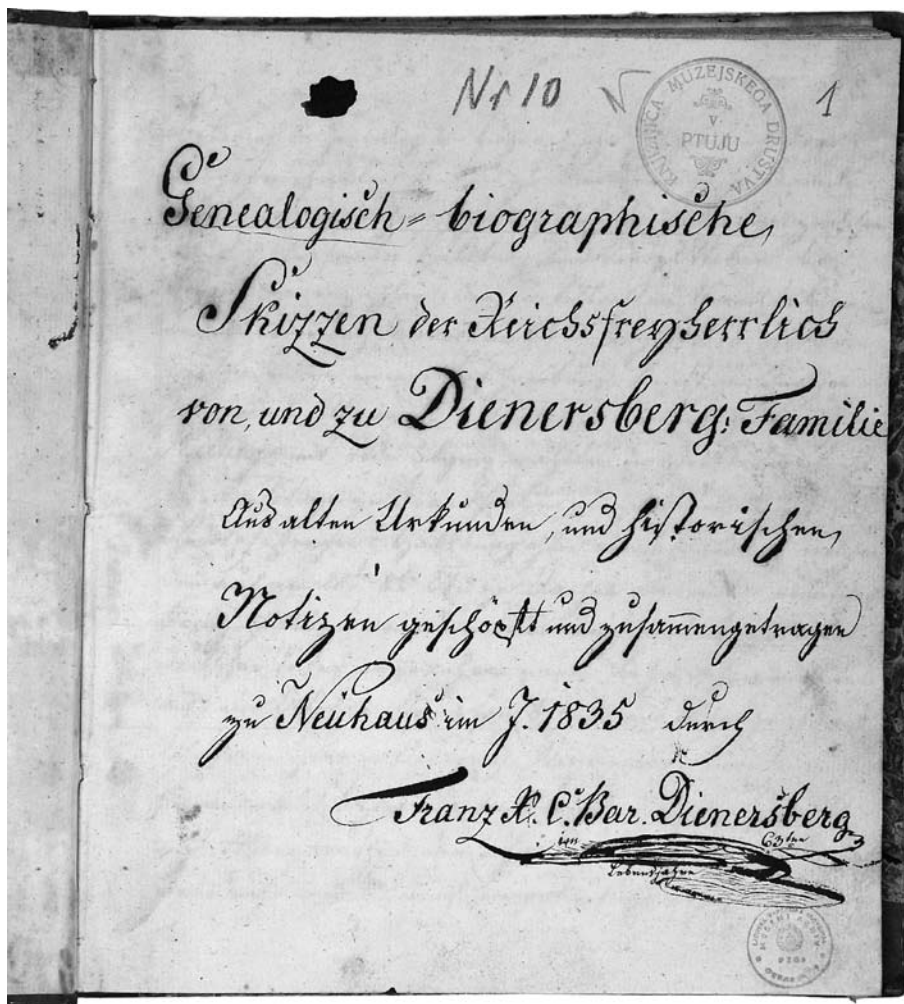 Nr 10
1
KNJIŽNICA MUZEJSKEGA DRUŠTVA
V
PTUJU
Genealogisch = biographische
Skizzen der Reichsfreyherrlich
von, und zu Dienersberg: Familie
Aus alten Urkunden, und historischen
Notizen geschöpft und zusammengetragen
zu Neuhaus im J. 1835 durch
Franz X. C. Bar. Dienersberg
im 63ten
Lebensjahre